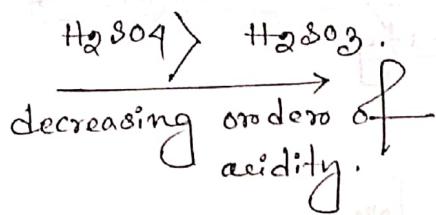 H2SO4 > H2SO3.
decreasing order of
acidity.